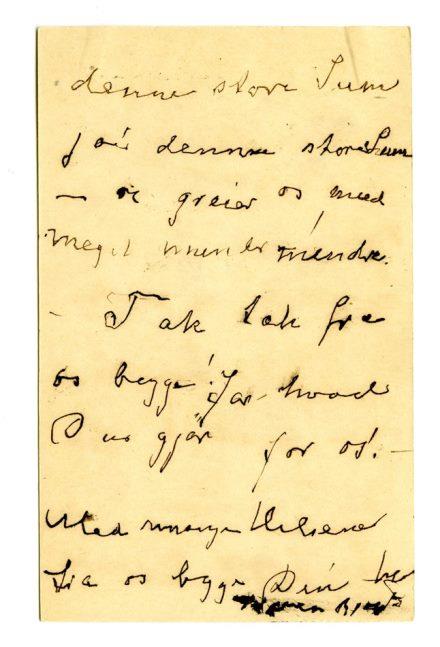 denne store Sum
for denne store Sum
— vi greier os med
meget mindre.
- Tak tak fra
os begge! for hvad
Du gjør for os! —
Med mange Hilsener
fra os begge Din